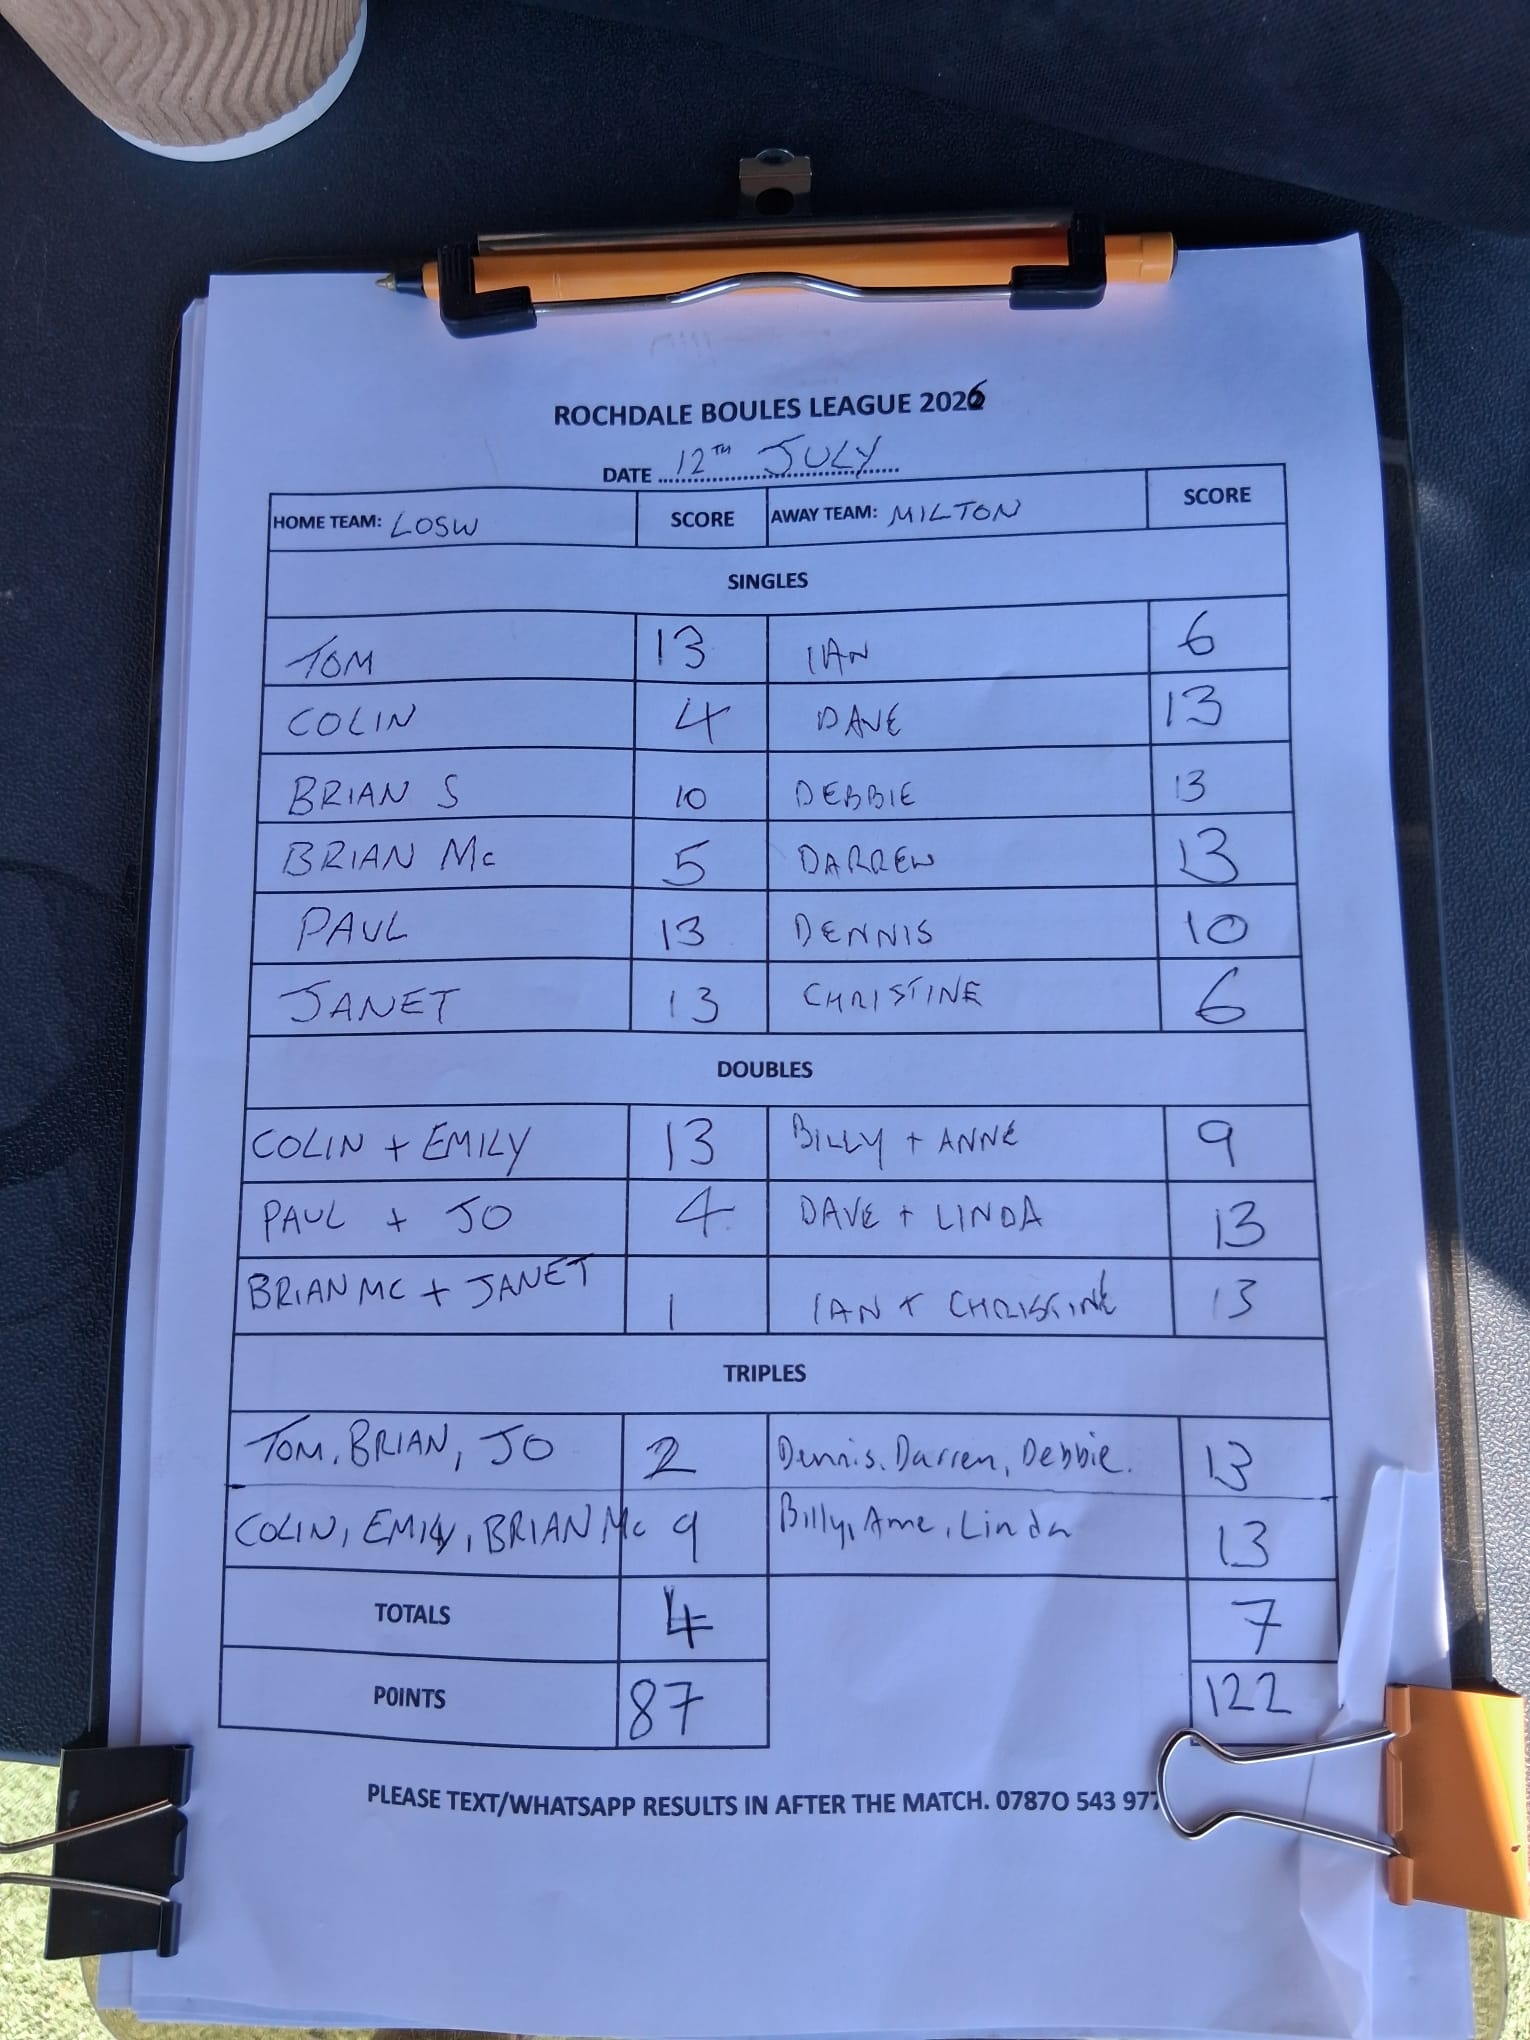 ROCHDALE BOULES LEAGUE 2026
DATE 12TH JULY
HOME TEAM: LOSW SCORE AWAY TEAM: MILTON SCORE
SINGLES
TOM 13 IAN 6
COLIN 4 DAVE 13
BRIAN S 10 DEBBIE 13
BRIAN Mc 5 DARREN 13
PAUL 13 DENNIS 10
JANET 13 CHRISTINE 6
DOUBLES
COLIN + EMILY 13 BILLY + ANNE 9
PAUL + JO 4 DAVE + LINDA 13
BRIAN MC + JANET 1 IAN + CHRISTINE 13
TRIPLES
TOM, BRIAN, JO 2 Dennis, Darren, Debbie. 13
COLIN, EMILY, BRIAN Mc 9 Billy, Anne, Linda 13
TOTALS 4 7
POINTS 87 122
PLEASE TEXT/WHATSAPP RESULTS IN AFTER THE MATCH. 07870 543 977